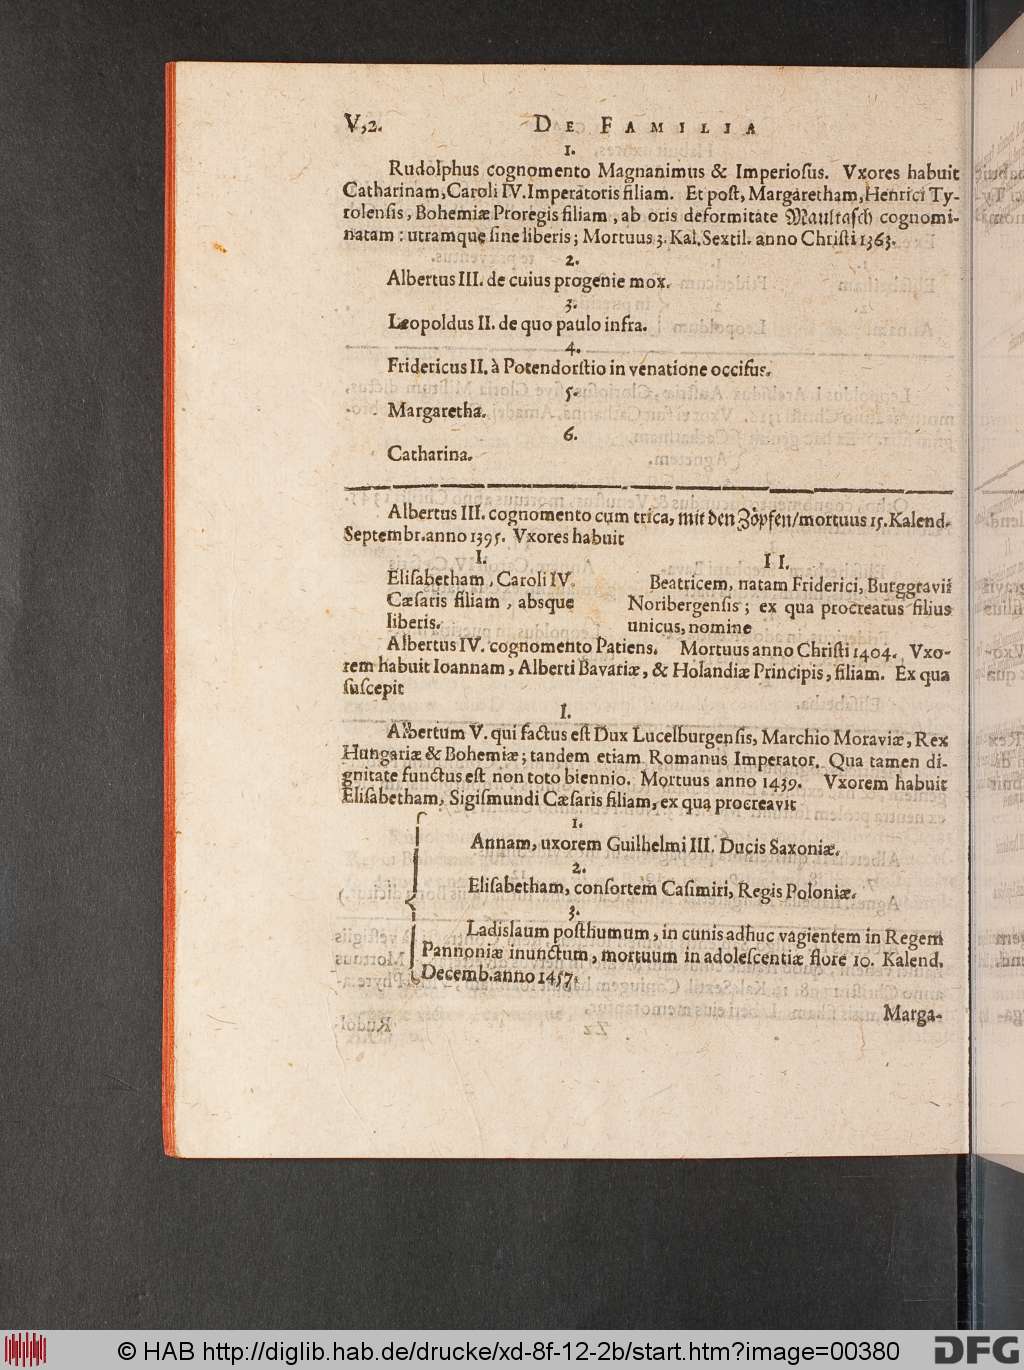 V,2. DE FAMILIA
1.
Rudolphus cognomento Magnanimus & Imperioſus. Vxores habuit
Catharinam, Caroli IV. Imperatoris filiam. Et poſt, Margaretham, Henrici Ty-
rolenſis, Bohemiæ Proregis filiam, ab oris deformitate Maultaſch cognomi-
natam: utramque ſine liberis; Mortuus 3. Kal. Sextil. anno Chriſti 1363.
2.
Albertus III. de cuius progenie mox.
3.
Leopoldus II. de quo paulo infra.
4.
Fridericus II. à Potendorſtio in venatione occiſus.
5.
Margaretha.
6.
Catharina.
Albertus III. cognomento cum trica, mit den Zöpfen/ mortuus 15. Kalend.
Septembr. anno 1395. Vxores habuit
I.
Eliſabetham, Caroli IV.
Cæſaris filiam, absque
liberis.
II.
Beatricem, natam Friderici, Burggravii
Noribergenſis; ex qua procreatus filius
unicus, nomine
Albertus IV. cognomento Patiens. Mortuus anno Chriſti 1404. Vxo-
rem habuit Ioannam, Alberti Bavariæ, & Holandiæ Principis, filiam. Ex qua
ſuſcepit
I.
Albertum V. qui factus eſt Dux Lucelburgenſis, Marchio Moraviæ, Rex
Hungariæ & Bohemiæ; tandem etiam Romanus Imperator. Qua tamen di-
gnitate functus eſt non toto biennio. Mortuus anno 1439. Vxorem habuit
Eliſabetham, Sigiſmundi Cæſaris filiam, ex qua procreavit
1.
Annam, uxorem Guilhelmi III. Ducis Saxoniæ.
2.
Eliſabetham, conſortem Caſimiri, Regis Poloniæ.
3.
Ladislaum poſthumum, in cunis adhuc vagientem in Regem
Pannoniæ inunctum, mortuum in adoleſcentiæ flore 10. Kalend.
Decemb. anno 1457.
Marga-
© HAB http://diglib.hab.de/drucke/xd-8f-12-2b/start.htm?image=00380
DFG